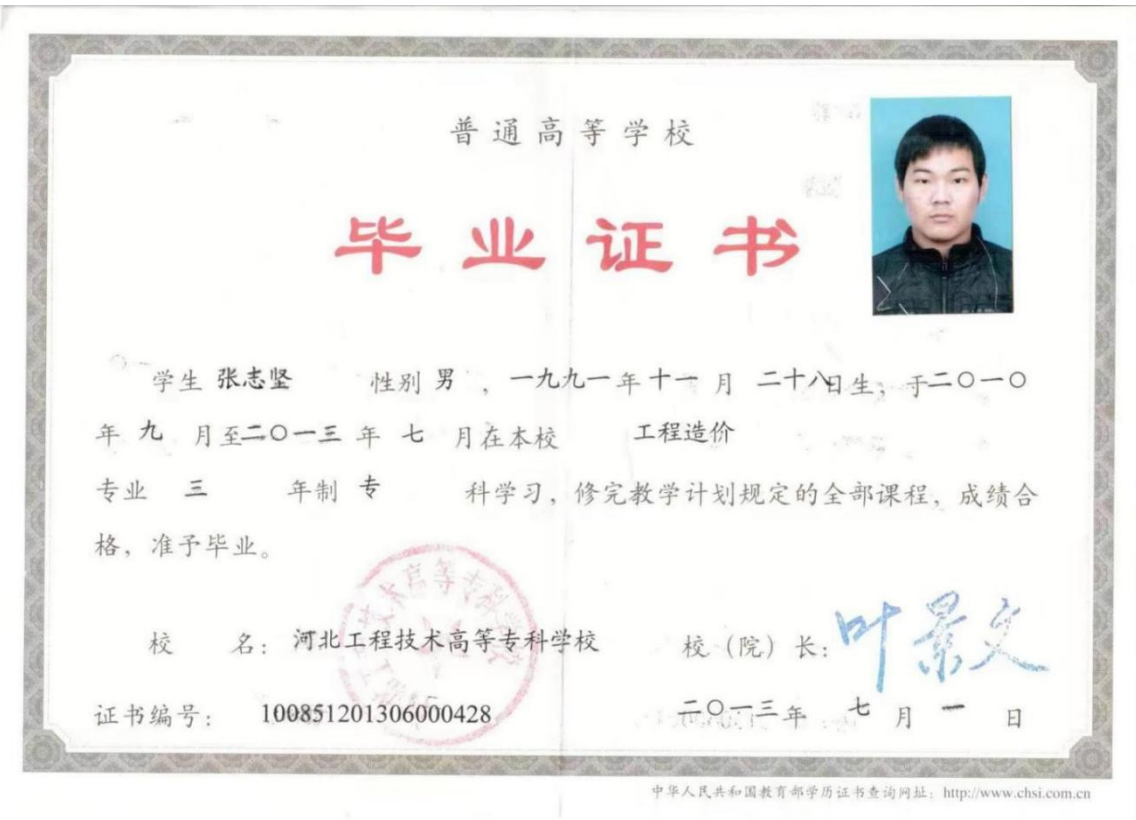 普通高等学校
毕业证书
学生 张志坚 性别 男 ，一九九一 年 十一 月 二十八日生，于二〇一〇
年 九 月至二〇一三 年 七 月在本校 工程造价
专业 三 年制 专 科学习，修完教学计划规定的全部课程，成绩合
格，准予毕业。
校 名：河北工程技术高等专科学校
校（院）长：叶景文
证书编号：100851201306000428
二〇一三年 七 月 一 日
中华人民共和国教育部学历证书查询网址：http://www.chsi.com.cn